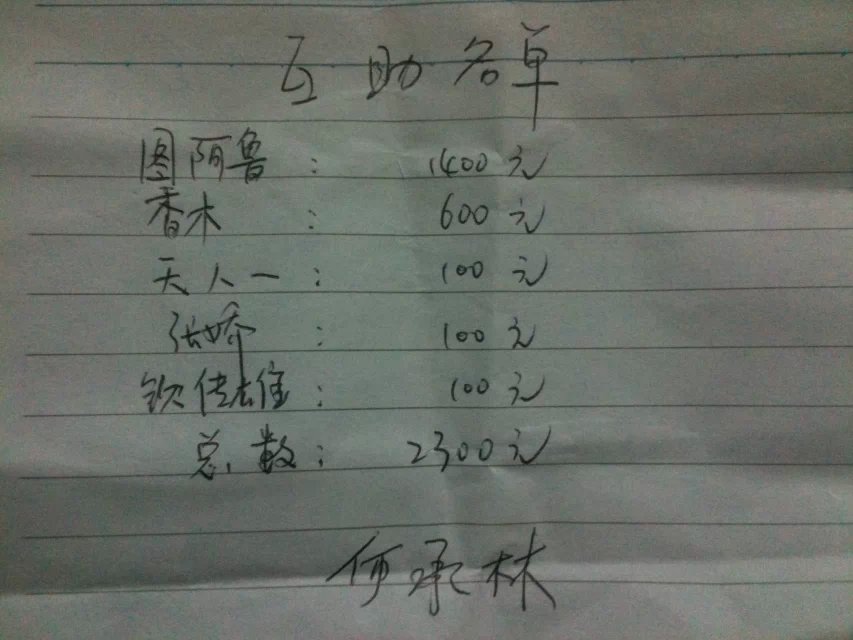 互助名单
图阿鲁：1400元
香木：600元
天人一：100元
张娇：100元
钦佳：100元
总数：2300元
何承林